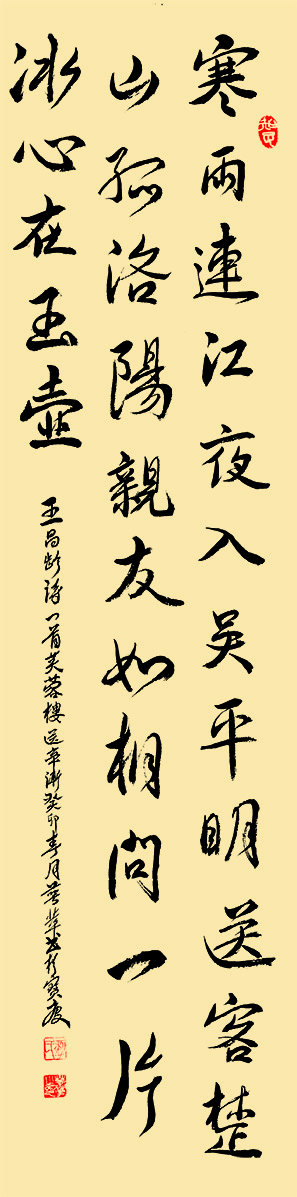 寒雨連江夜入吴平明送客楚
山孤洛陽親友如相問一片
冰心在玉壺
王昌龄诗一首芙蓉樓送辛渐癸卯春月